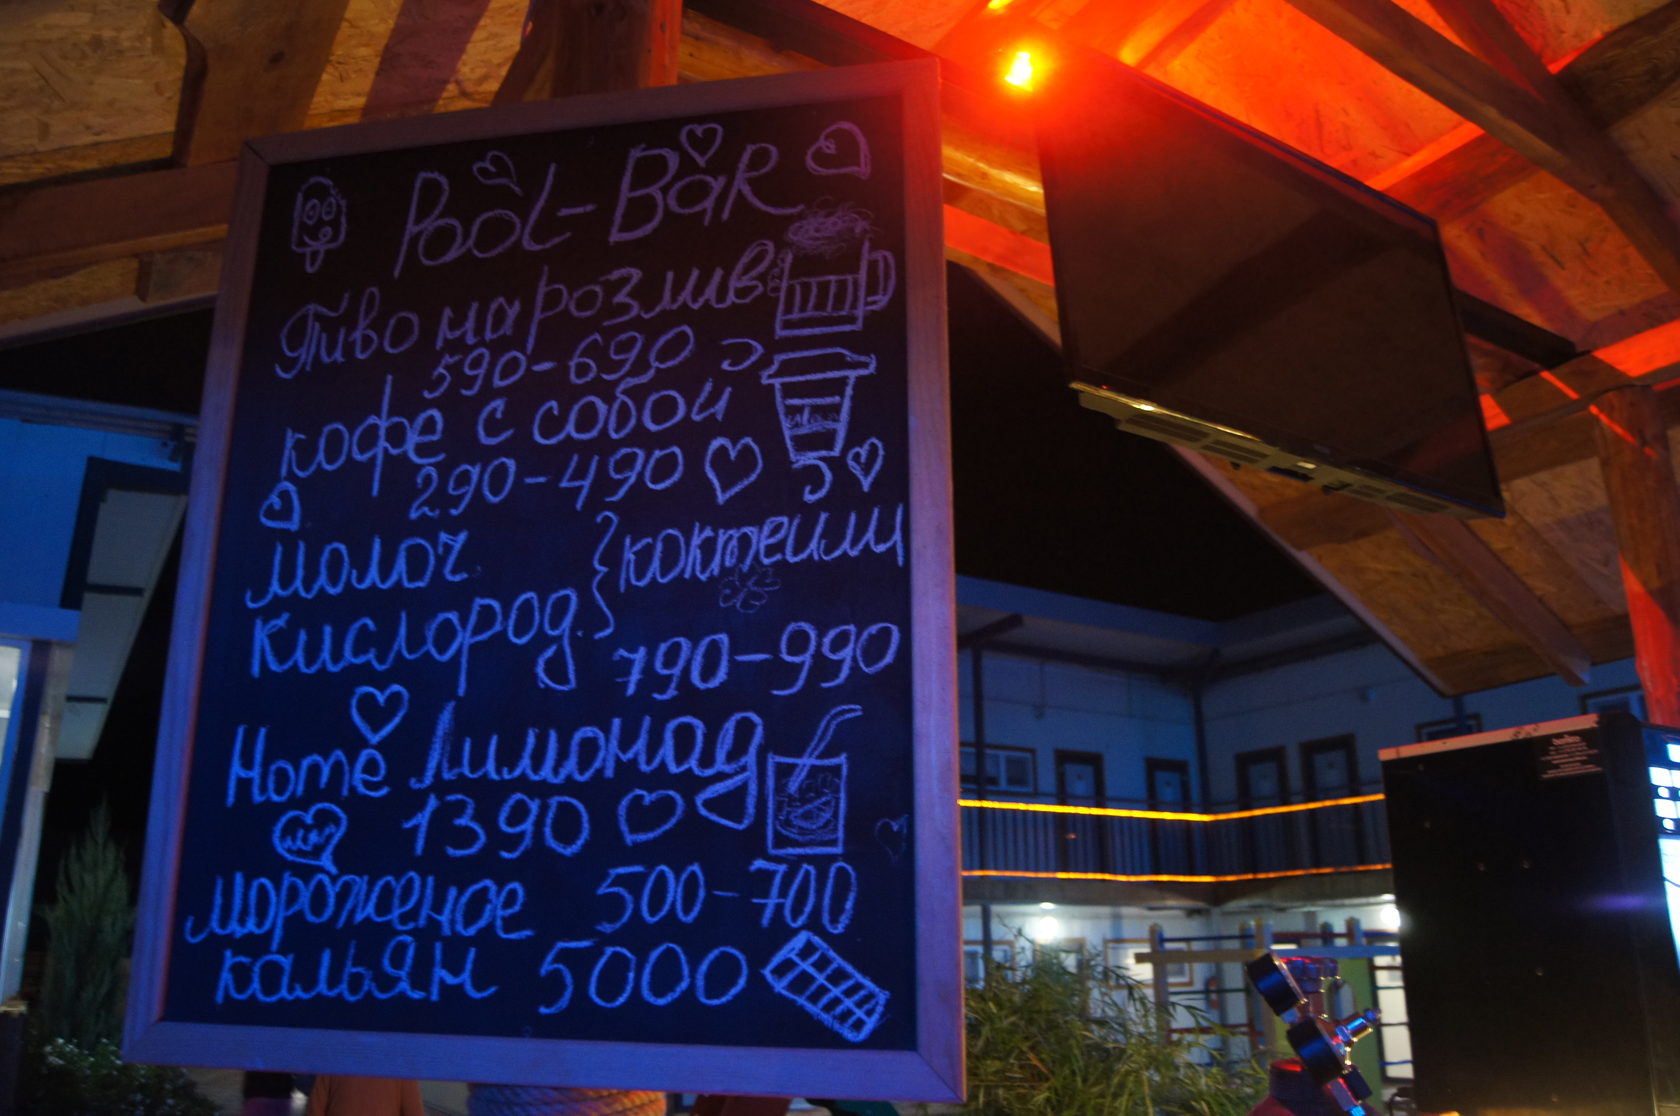 Pool-Bar
Пиво на розлив
590-690
кофе с собой
290-490
молоч.
кислород.
коктейли
790-990
Home Лимонад
1390
мороженое 500-700
кальян 5000